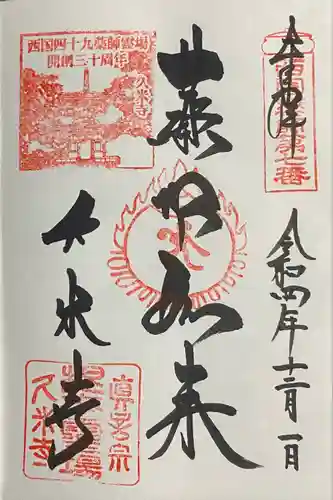 奉拝
令和四年十二月一日
西国薬師第七番
薬師如来
西国四十九薬師霊場
開創三十周年
久米寺
久米寺
真言宗
久米寺